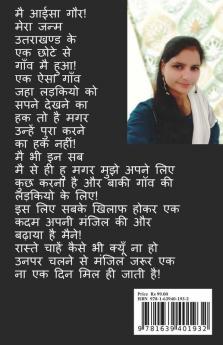 मै आईसा गौर!
मेरा जन्म
उतराखण्ड के
एक छोटे से
गाँव मै हुआ!
एक ऐसा गाँव
जहा लड़कियो को
सपने देखने का
हक तो है मगर
उन्हें पुरा करने
का हक नहीं!
मै भी इन सब
मै से ही हु मगर मुझे अपने लिए
कुछ करना है और बाकी गाँव की
लड़कियो के लिए!
इस लिए सबके खिलाफ होकर एक
कदम अपनी मंजिल की और
बढ़ाया है मैने!
रास्ते चाहें कैसे भी क्यूँ ना हो
उनपर चलने से मंजिल जरूर एक
ना एक दिन मिल ही जाती है!
Price Rs 99.00
ISBN: 978-1-63940-193-2
9 781639 401932